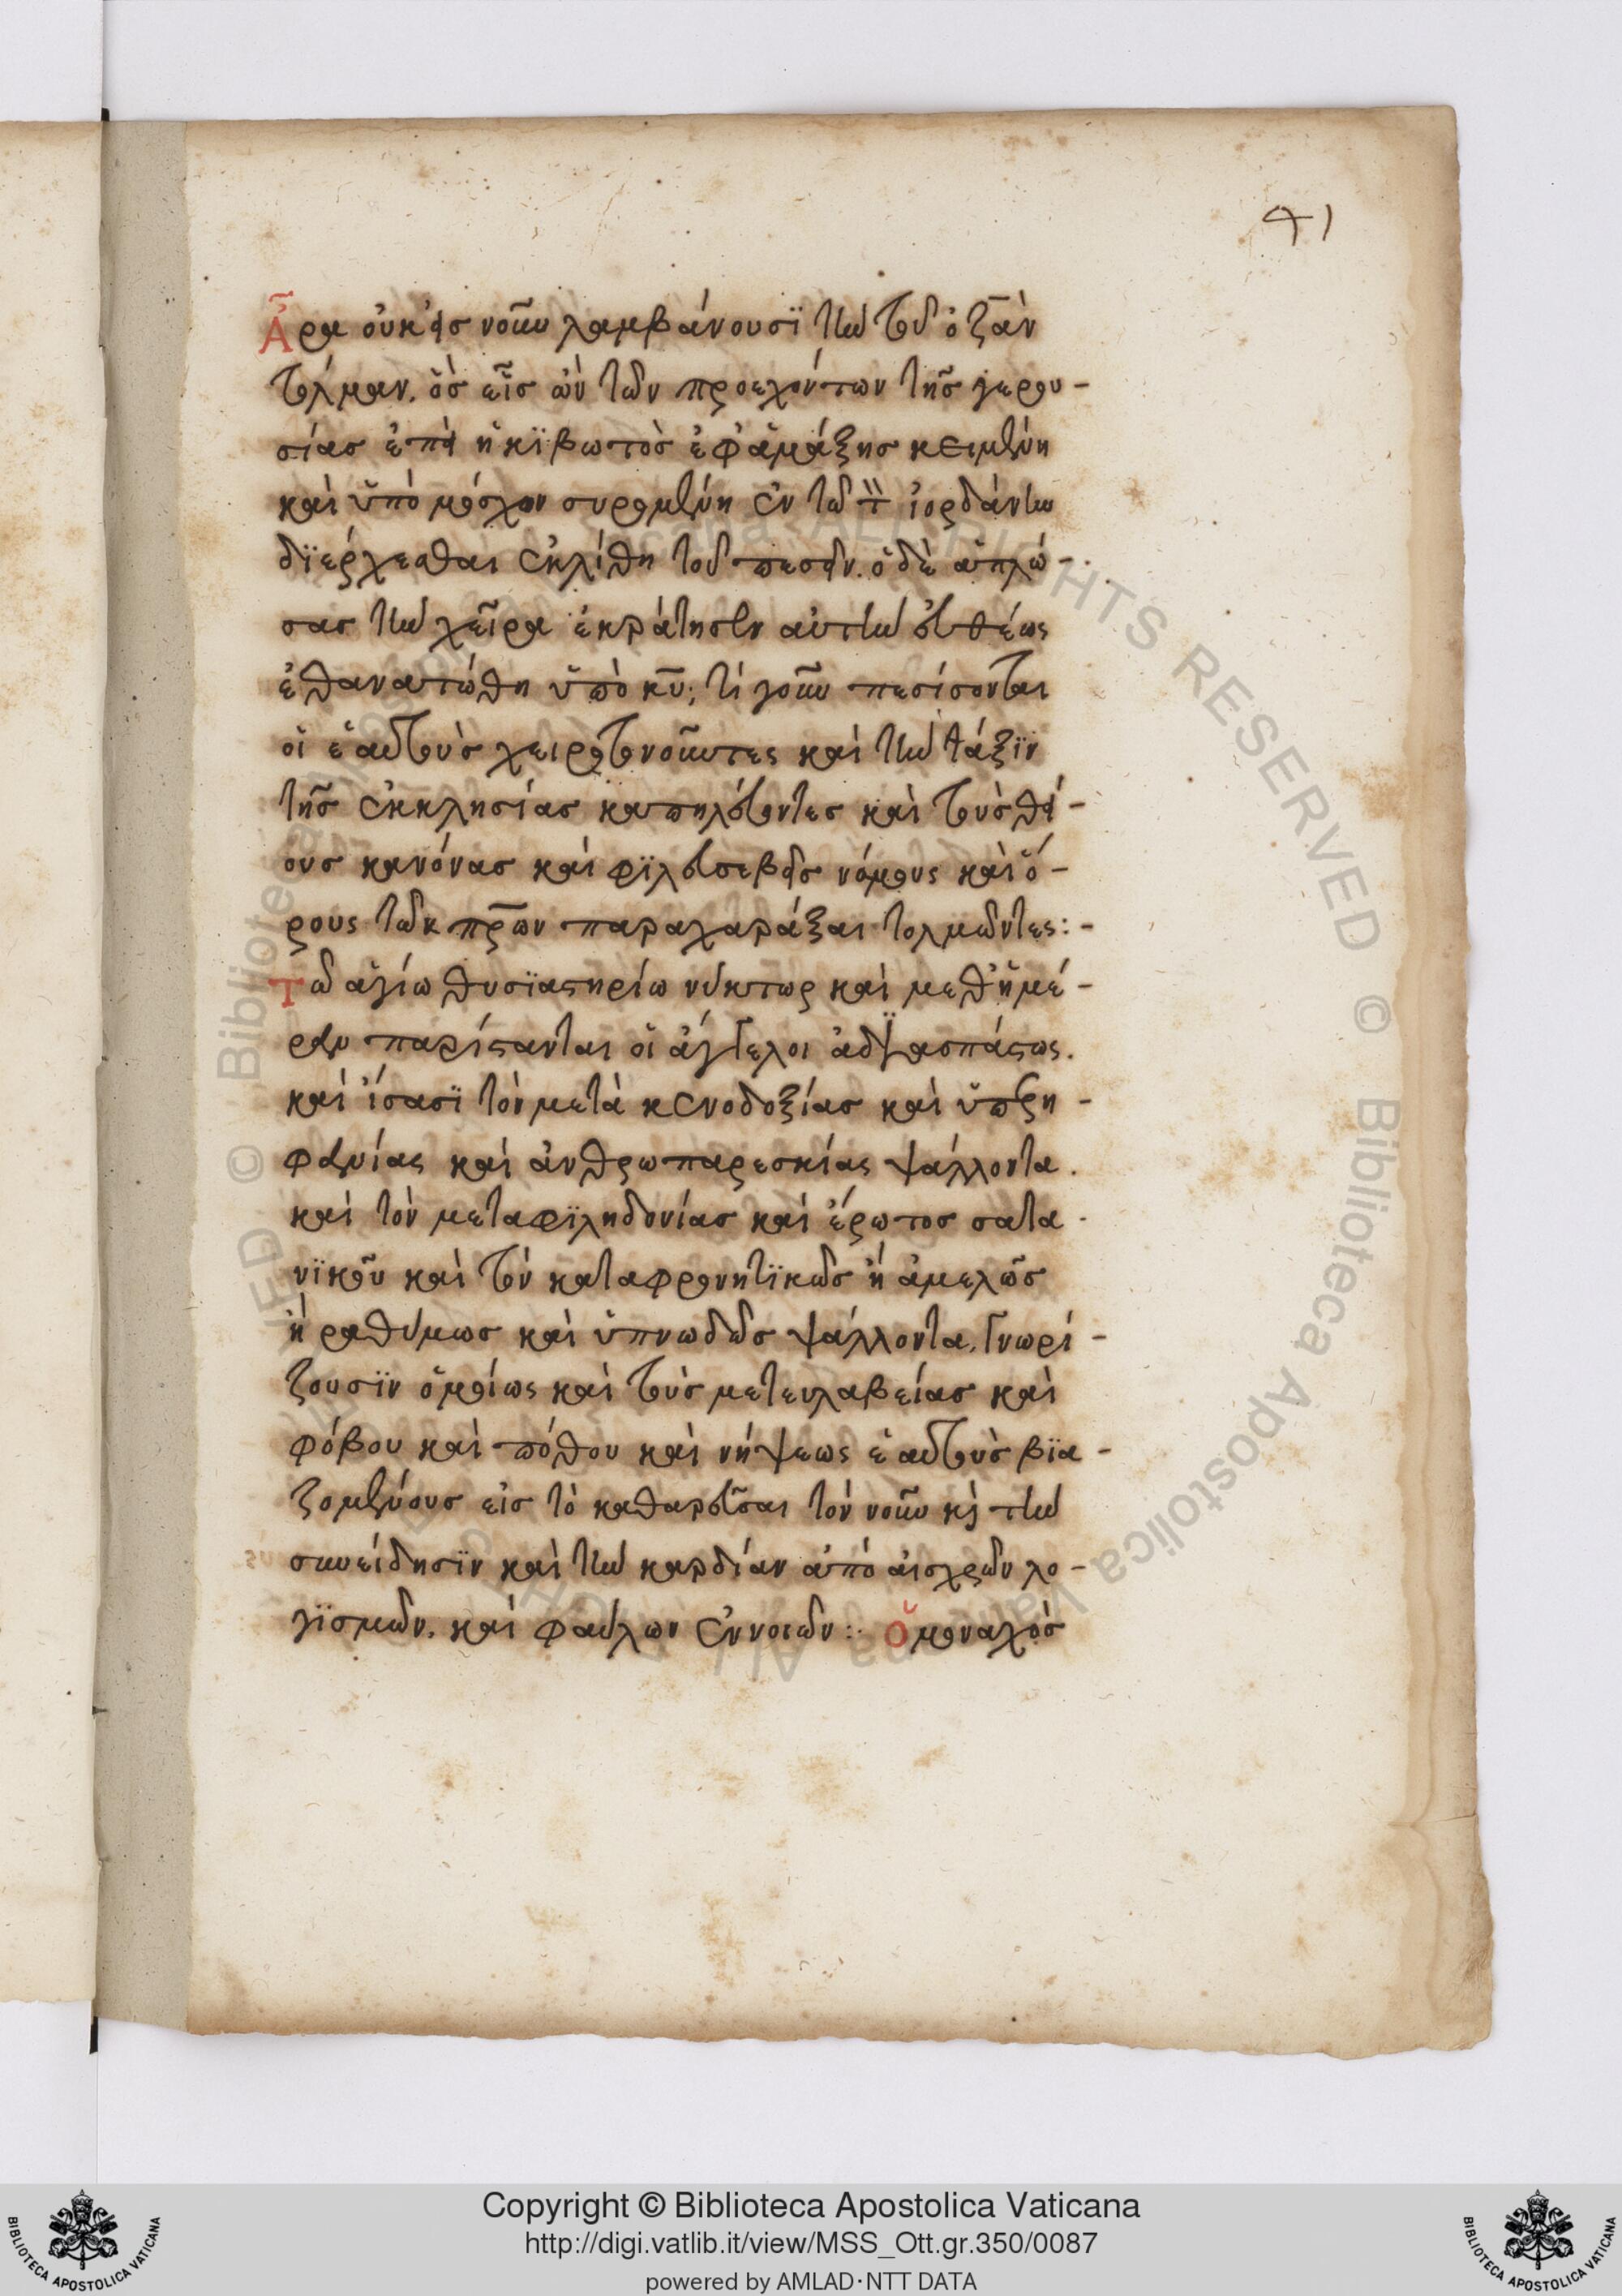 41
Ἆρα οὐκ εἰς νοῦν λαμβάνουσϊ τὴν τοῦ ὀζᾶν
τόλμαν. ὃς εἷς ὢν τῶν προεχόντων τῆς γερου-
σίας ἐπεὶ ἡ κϊβωτὸς ἐφ ἁμάξης κειμένη
καὶ ὑπὸ μόσχων συρομένη ἐν τῶ ἰορδάνη
δϊέρχεσθαι ἐκλίθη τοῦ πεσεῖν. ὁ δὲ ἁπλώ-
σας τὴν χεῖρα ἐκράτησεν αὐτὴν εὐθέως
ἐθανατώθη ὑπὸ κυ̅; τί γοῦν πεσίσονται
οἱ ἑαυτοὺς χειροτονοῦντες καὶ τὴν τάξϊν
τῆς ἐκκλησίας καπηλεύοντες καὶ τοὺς θεί-
ους κανόνας καὶ φϊλευσεβεῖς νόμους καὶ ὅ-
ρους τῶν πρ̅ων παραχαράξαι τολμῶντες:-
Τῶ ἁγίω θυσϊαστηρίω νύκτωρ καὶ μεθ ἡμέ-
ραν παρίστανται οἱ ἄγγελοι ἀδϊασπάστως.
καὶ ἴσασϊ τὸν μετὰ κενοδοξίας καὶ ὑπερη-
φανίας καὶ ἀνθρωπαρεσκίας ψάλλοντα.
καὶ τὸν μετα φϊληδονίας καὶ ἔρωτος σατα-
νϊκοῦ καὶ τὸν καταφρονητϊκῶς ἢ ἀμελῶς
ἢ ραθύμως καὶ ὑπνωδῶς ψάλλοντα. γνωρί-
ζουσϊν ὁμοίως καὶ τοὺς μετευλαβείας καὶ
φόβου καὶ πόθου καὶ νήψεως ἑαυτοὺς βϊα-
ζομένους εἰς τὸ καθαρεῦσαι τὸν νοῦν κὶ τὴν
συνείδησϊν καὶ τὴν καρδίαν ἀπὸ αἰσχρῶν λο-
γϊσμῶν. καὶ φαύλων ἐννοιῶν:. Ὁ μοναχὸς
Copyright © Biblioteca Apostolica Vaticana
http://digi.vatlib.it/view/MSS_Ott.gr.350/0087
powered by AMLAD·NTT DATA
BIBLIOTECA APOSTOLICA VATICANA
BIBLIOTECA APOSTOLICA VATICANA